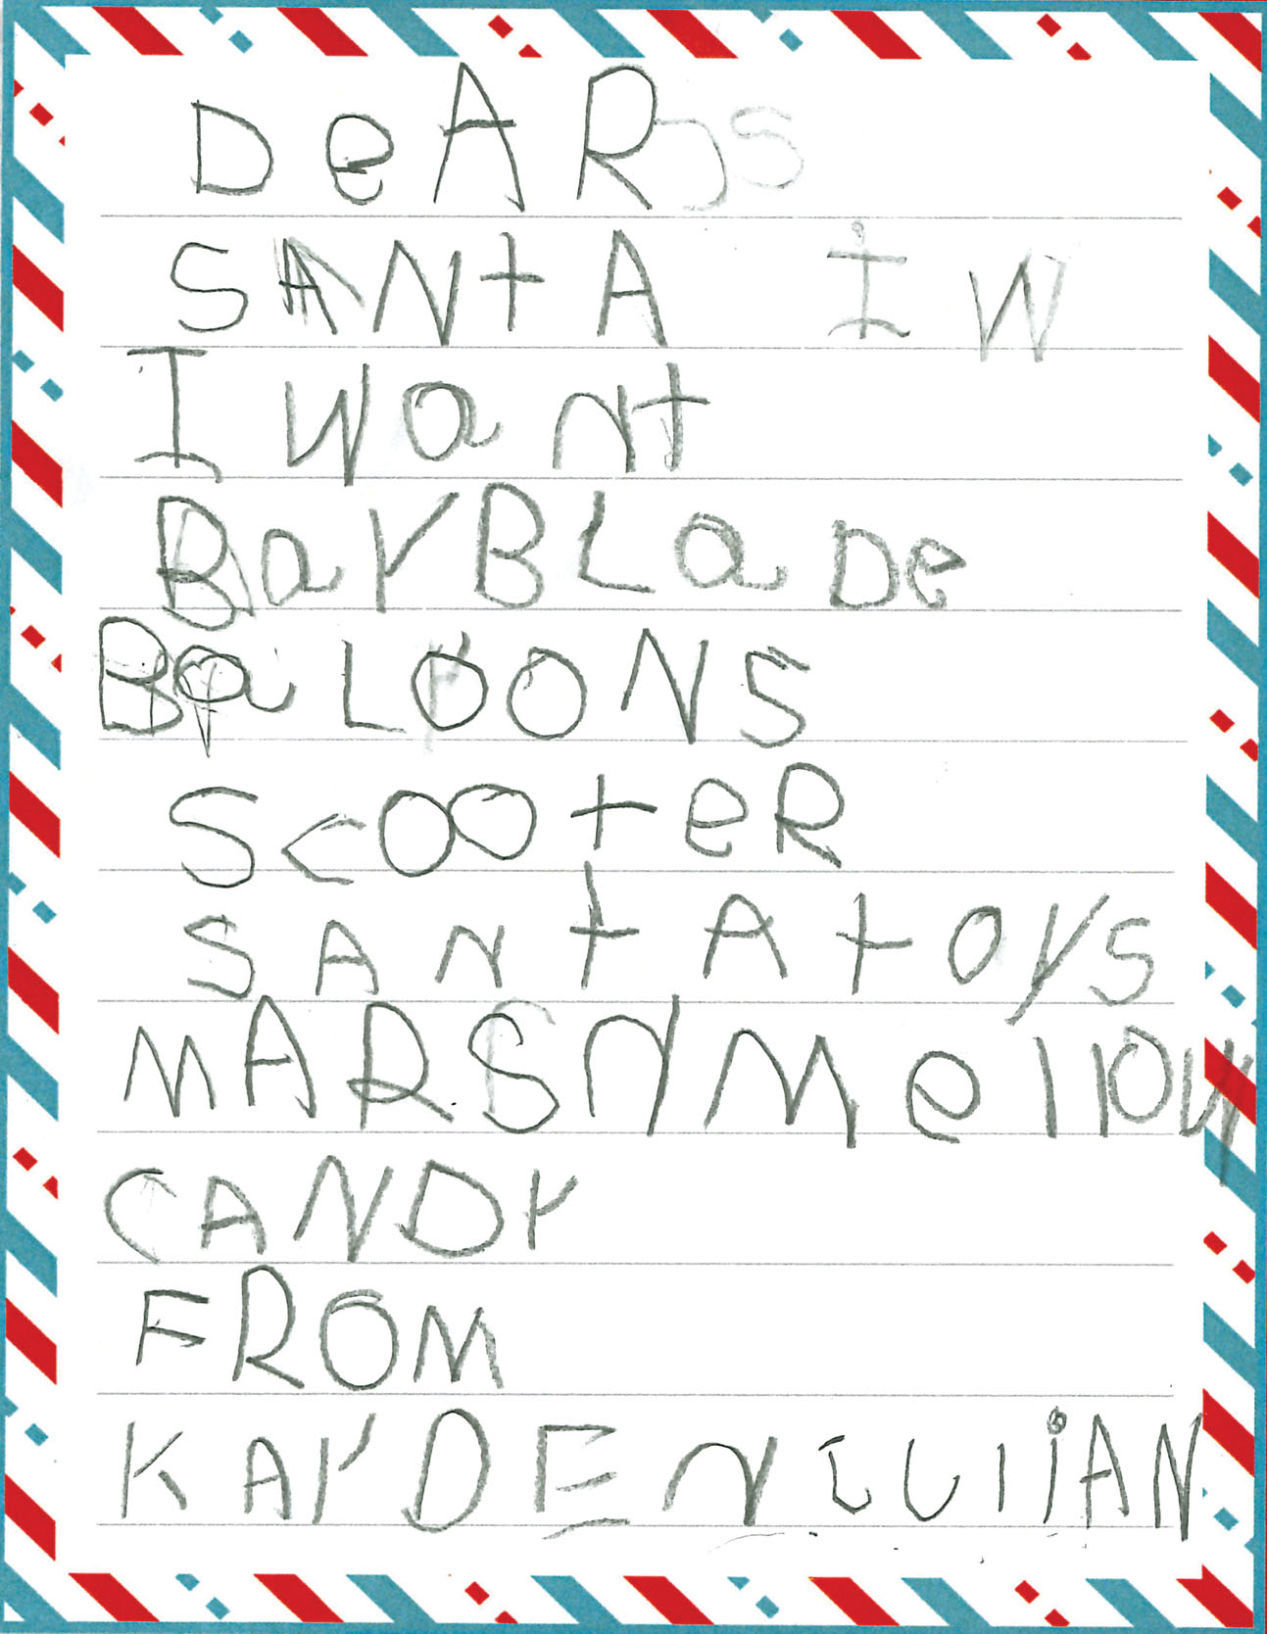 DeAR
SANtA I W
I Want
BayBLaDe
BaLOONS
ScooteR
SANtA tOyS
MARSHMellOW
CANDY
FROM
KAYDEN